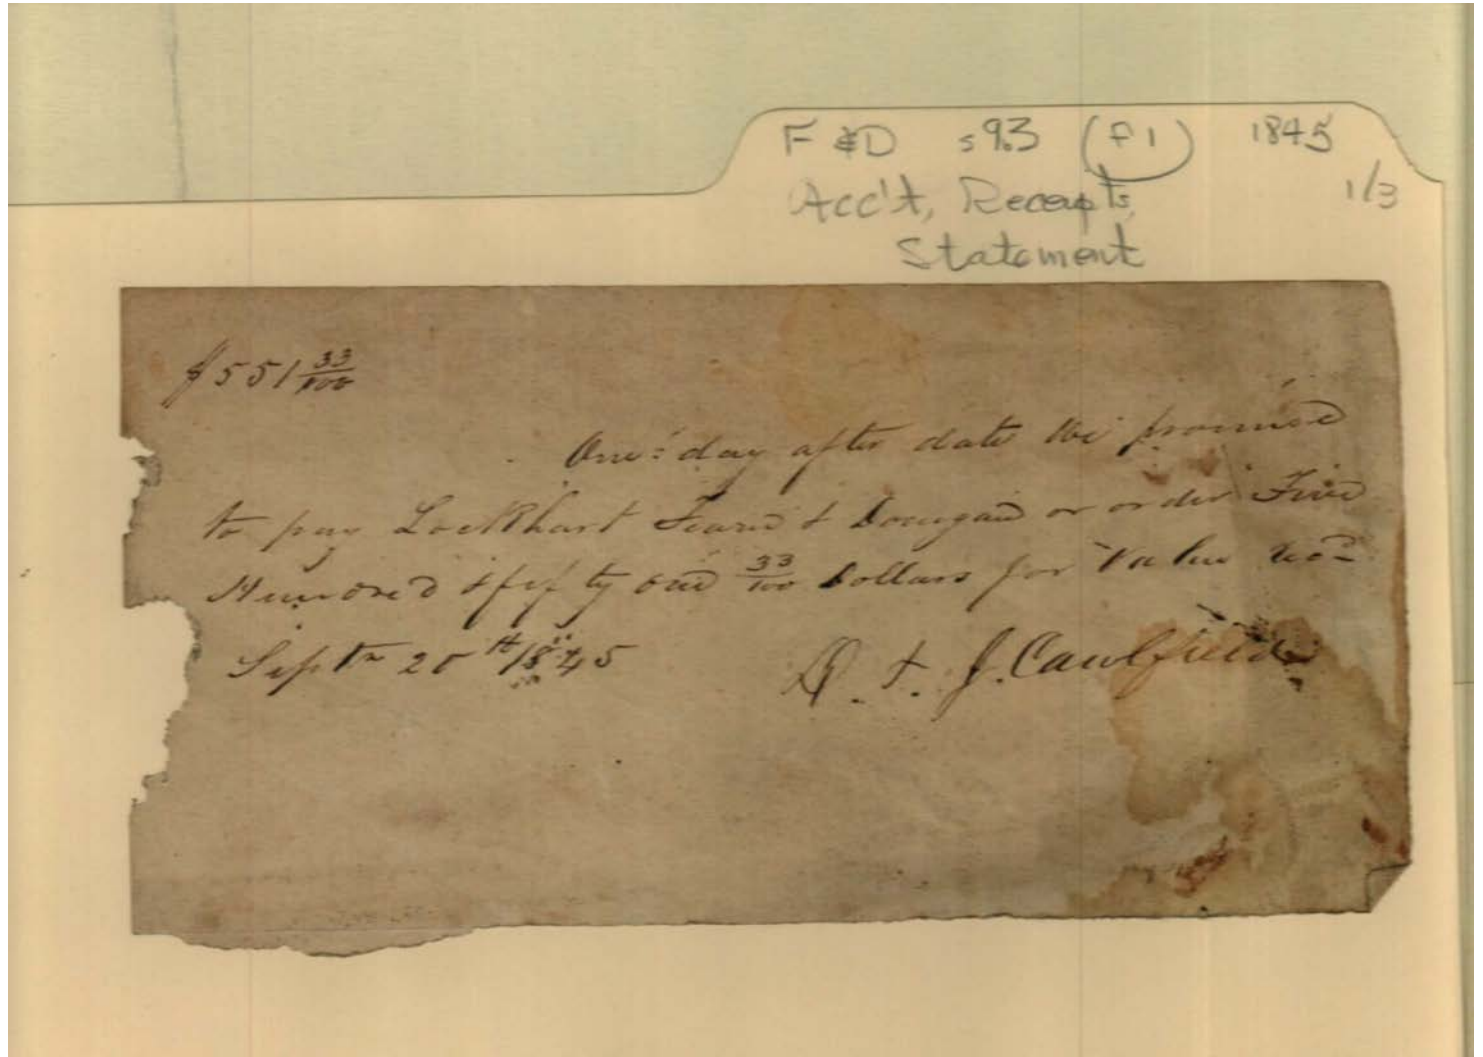 F & D s 9.3 (f 1) 1845
1/3
Acc't, Receipts,
Statement
$551 33/100
One day after date we promise
to pay Lockhart Fearn & Donegan or order Five
Hundred & fifty one 33/100 Dollars for Value recd
Septr 20th 1845 D. & J. Caulfield